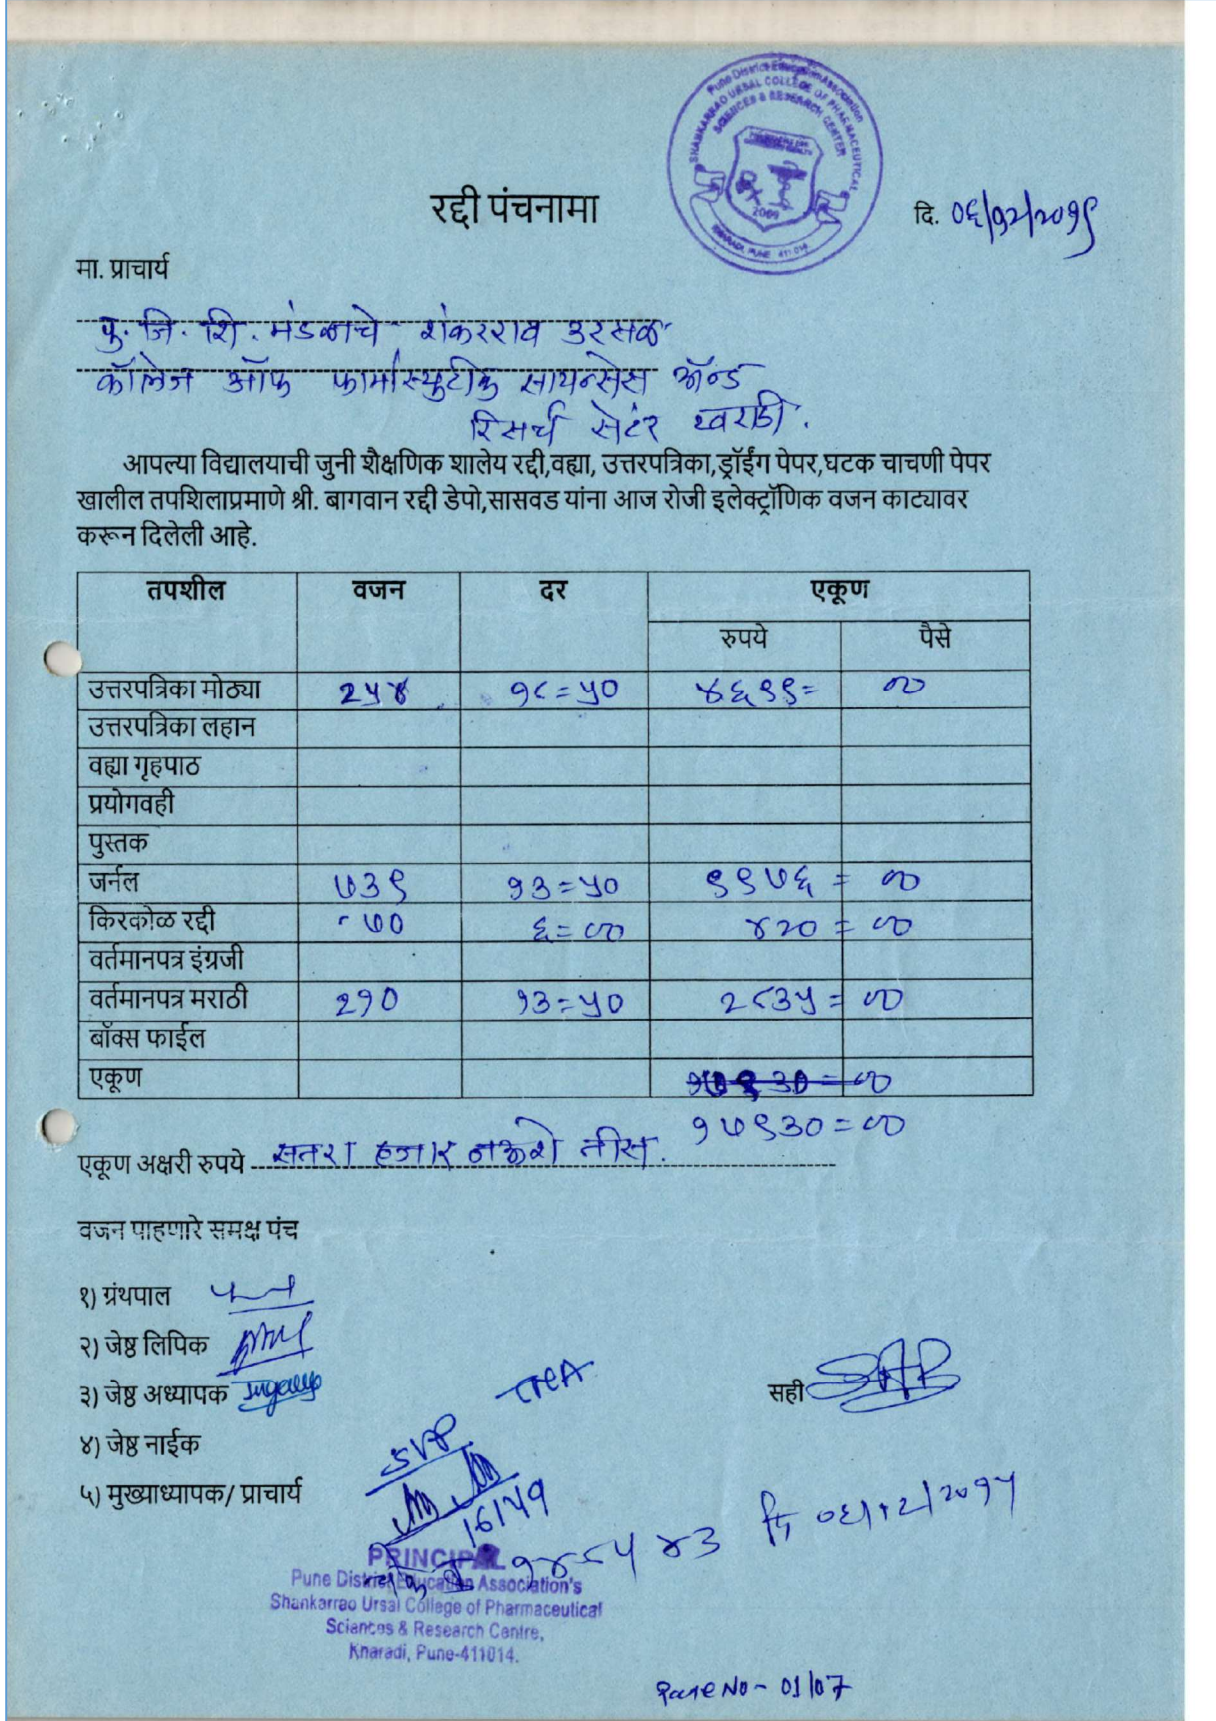 Pune District Education Association
SHANKARRAO URSAL COLLEGE OF PHARMACEUTICAL
SCIENCES & RESEARCH CENTER
2009
KHARADI, PUNE 411 014
रद्दी पंचनामा
दि. ०६/१२/२०१९
मा. प्राचार्य
पु. जि. शि. मंडळाचे शंकरराव उरसळ
कॉलेज ऑफ फार्मास्युटीकु सायन्सेस ॲन्ड
रिसर्च सेंटर खराडी.
आपल्या विद्यालयाची जुनी शैक्षणिक शालेय रद्दी,वह्या, उत्तरपत्रिका,ड्रॉईंग पेपर,घटक चाचणी पेपर
खालील तपशिलाप्रमाणे श्री. बागवान रद्दी डेपो,सासवड यांना आज रोजी इलेक्ट्रॉणिक वजन काट्यावर
करून दिलेली आहे.
तपशील वजन दर एकूण
रुपये पैसे
उत्तरपत्रिका मोठ्या २५४ १८=५० ४६९९= ००
उत्तरपत्रिका लहान
वह्या गृहपाठ
प्रयोगवही
पुस्तक
जर्नल ७३९ १३=५० ९९७६ = ००
किरकोळ रद्दी ७० ६=०० ४२० = ००
वर्तमानपत्र इंग्रजी
वर्तमानपत्र मराठी २१० १३=५० २८३५ = ००
बॉक्स फाईल
एकूण
१७९३०=००
एकूण अक्षरी रुपये सतरा हजार नऊशे तीस.
वजन पाहणारे समक्ष पंच
१) ग्रंथपाल
२) जेष्ठ लिपिक
३) जेष्ठ अध्यापक
सही
४) जेष्ठ नाईक
५) मुख्याध्यापक/ प्राचार्य
PRINCIPAL
Pune District Education Association's
Shankarrao Ursal College of Pharmaceutical
Sciences & Research Centre,
Kharadi, Pune-411014.
No - 01/07